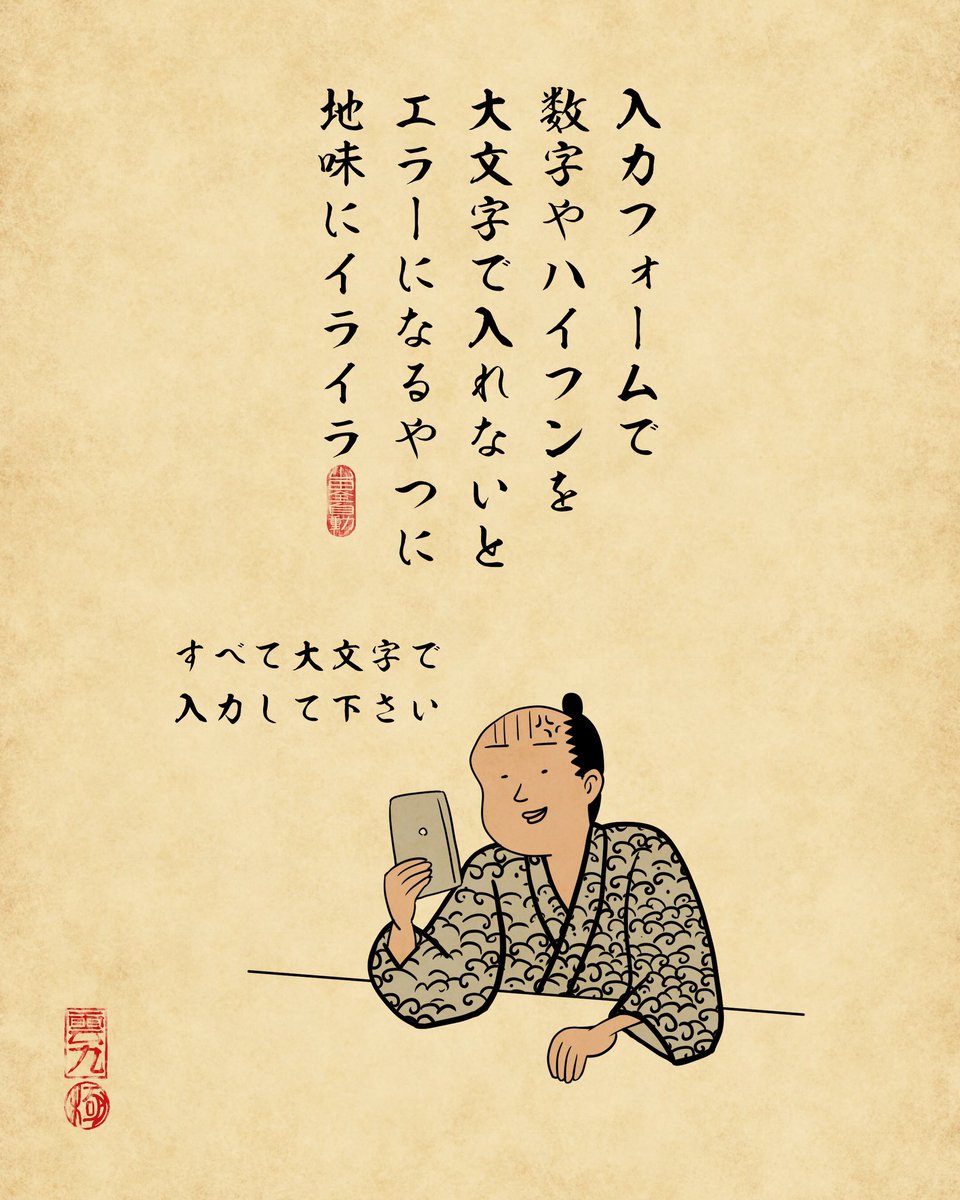 入力フォームで
数字やハイフンを
大文字で入れないと
エラーになるやつに
地味にイライラ
すべて大文字で
入力して下さい